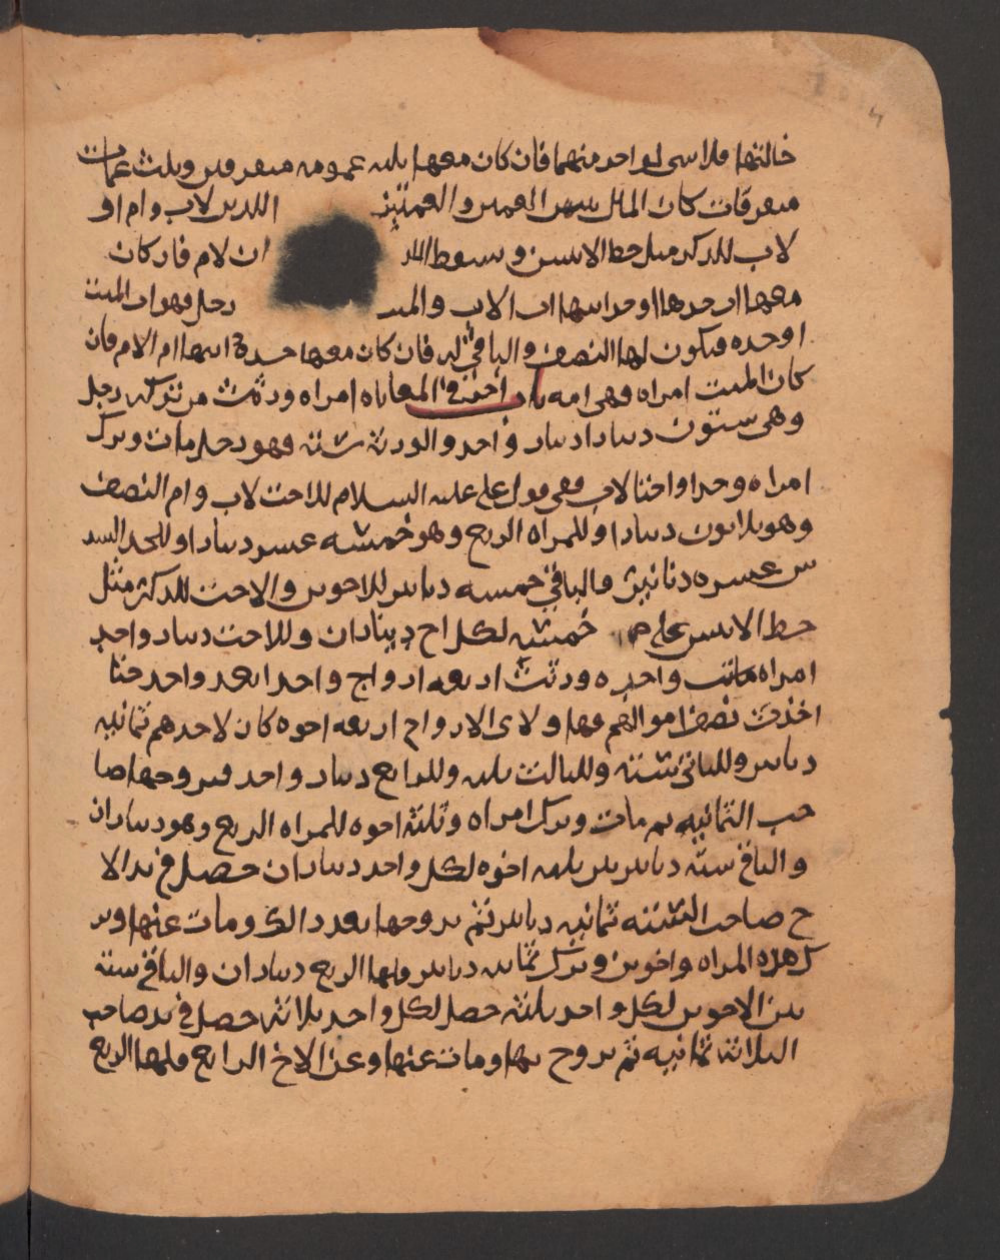 خالتها فلا شى لواحد منهما فان كان معها ثلثه عمومه متفرقين وثلث عمات
متفرقات كان المال بين العمين والعمتين اللذين لاب وام او
لاب للذكر مثل حظ الانثيين وسقط ان لام فان كان
معها احدها او جد ابيها اب الاب والميت رجل فهو اب الميت
او جده فيكون لها النصف والباقي له فان كان معها جدة ابيها ام الام فان
كان الميت امراه فهى امه باب اخر في المعاياه امراه ورثت من تركه رجل
وهى ستون دينارا دينار واحد والورثة ستة فهو رجل مات وترك
امراه وجدا واختا لاب ففى قول على عليه السلام للاخت لاب وام النصف
وهو ثلاثون دينارا وللمراه الربع وهو خمسه عشر دينارا وللجد السد
س عشره دنانير والباقي خمسه دنانير للاخوين والاخت للذكر مثل
حظ الانثيين على خمسه لكل اخ ديناران وللاخت دينار واحد
امراه واحده ورثت اربعه ازواج واحدا بعد واحد حتا
اخذت نصف اموالهم فهاولاى الازواج اربعه اخوه كان لاحدهم ثمانيه
دنانير وللثانى سته وللثالث ثلثه وللرابع دينار واحد فتزوجها صا
حب الثمانيه ثم مات وترك امراه وثلثة اخوه للمراه الربع وهو ديناران
والباقي سته دنانير بين ثلثه اخوه لكل واحد ديناران حصل في يد الا
خ صاحب السته ثمانيه دنانير ثم تزوجها بعد ذالك ومات عنها وتر
ك هذه المراه واخوين وترك ثمانيه دنانير فلها الربع ديناران والباقي سته
بين الاخوين لكل واحد ثلثة حصل لكل واحد ثلاثه حصل في يد صاحب
الثلاثه ثمانيه ثم تزوج بها ومات عنها وعن الاخ الرابع فلها الربع